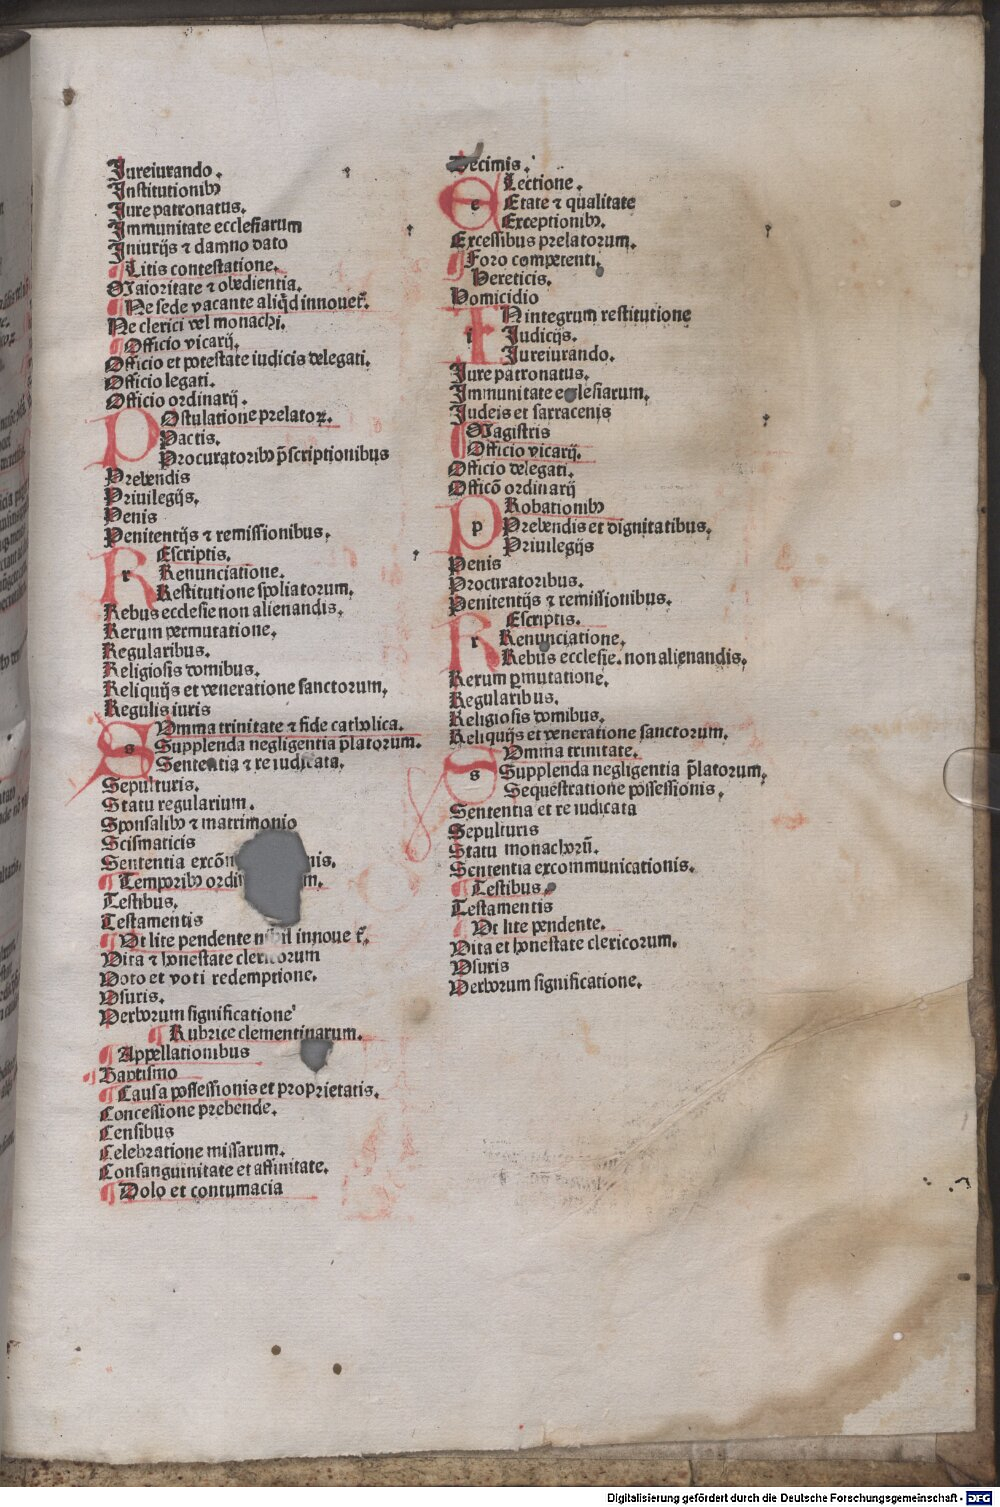 Iureiurando.
Institutionibꝰ
Iure patronatus.
Immunitate ecclesiarum
Iniurijs ⁊ damno dato
¶ Litis contestatione.
Maioritate ⁊ obedientia.
¶ Ne sede vacante aliqͥd innouet᷑.
Ne clerici vel monachi.
¶ Officio vicarij.
Officio et potestate iudicis delegati.
Officio legati.
Officio ordinarij.
POstulatione prelatoꝝ.
Pactis.
Procuratoribꝰ p̄scriptionibus
Prebendis
Priuilegijs.
Penis
Penitentijs ⁊ remissionibus.
REscriptis.
Renunciatione.
Restitutione spoliatorum.
Rebus ecclesie non alienandis.
Rerum permutatione.
Regularibus.
Religiosis domibus.
Reliquijs et veneratione sanctorum.
Regulis iuris
SVmma trinitate ⁊ fide catholica.
Supplenda negligentia p̄latorum.
Sententia ⁊ re iudicata.
Sepulturis.
Statu regularium.
Sponsalibꝰ ⁊ matrimonio
Scismaticis
Sententia excōn nis.
¶ Temporibꝰ ordi m.
Testibus.
Testamentis
¶ Vt lite pendente nihil innouet᷑.
Vita ⁊ honestate clericorum
Voto et voti redemptione.
Vsuris.
Verborum significatione
¶ Rubrice clementinarum.
¶ Appellationibus
¶ Baptismo
¶ Causa possessionis et proprietatis.
Concessione prebende.
Censibus
Celebratione missarum.
Consanguinitate et affinitate.
¶ Dolo et contumacia
Decimis.
ELectione.
Etate ⁊ qualitate
Exceptionibꝰ.
Excessibus prelatorum.
¶ Foro competenti.
Hereticis.
Homicidio
IN integrum restitutione
Iudicijs.
Iureiurando.
Iure patronatus.
Immunitate ecclesiarum.
Iudeis et sarracenis
¶ Magistris
¶ Officio vicarij.
Officio delegati.
Officō ordinarij
PRobationibꝰ
Prebendis et dignitatibus.
Priuilegijs
Penis
Procuratoribus.
Penitentijs ⁊ remissionibus.
REscriptis.
Renunciatione.
Rebus ecclesie. non alienandis.
Rerum ꝑmutatione.
Regularibus.
Religiosis domibus.
Reliquijs et veneratione sanctorum.
SVmma trinitate.
Supplenda negligentia p̄latorum.
Sequestratione possessionis.
Sententia et re iudicata
Sepulturis
Statu monachorū.
Sententia excommunicationis.
¶ Testibus
Testamentis
¶ Vt lite pendente.
Vita et honestate clericorum.
Vsuris
Verborum significatione.
Digitalisierung gefördert durch die Deutsche Forschungsgemeinschaft - DFG